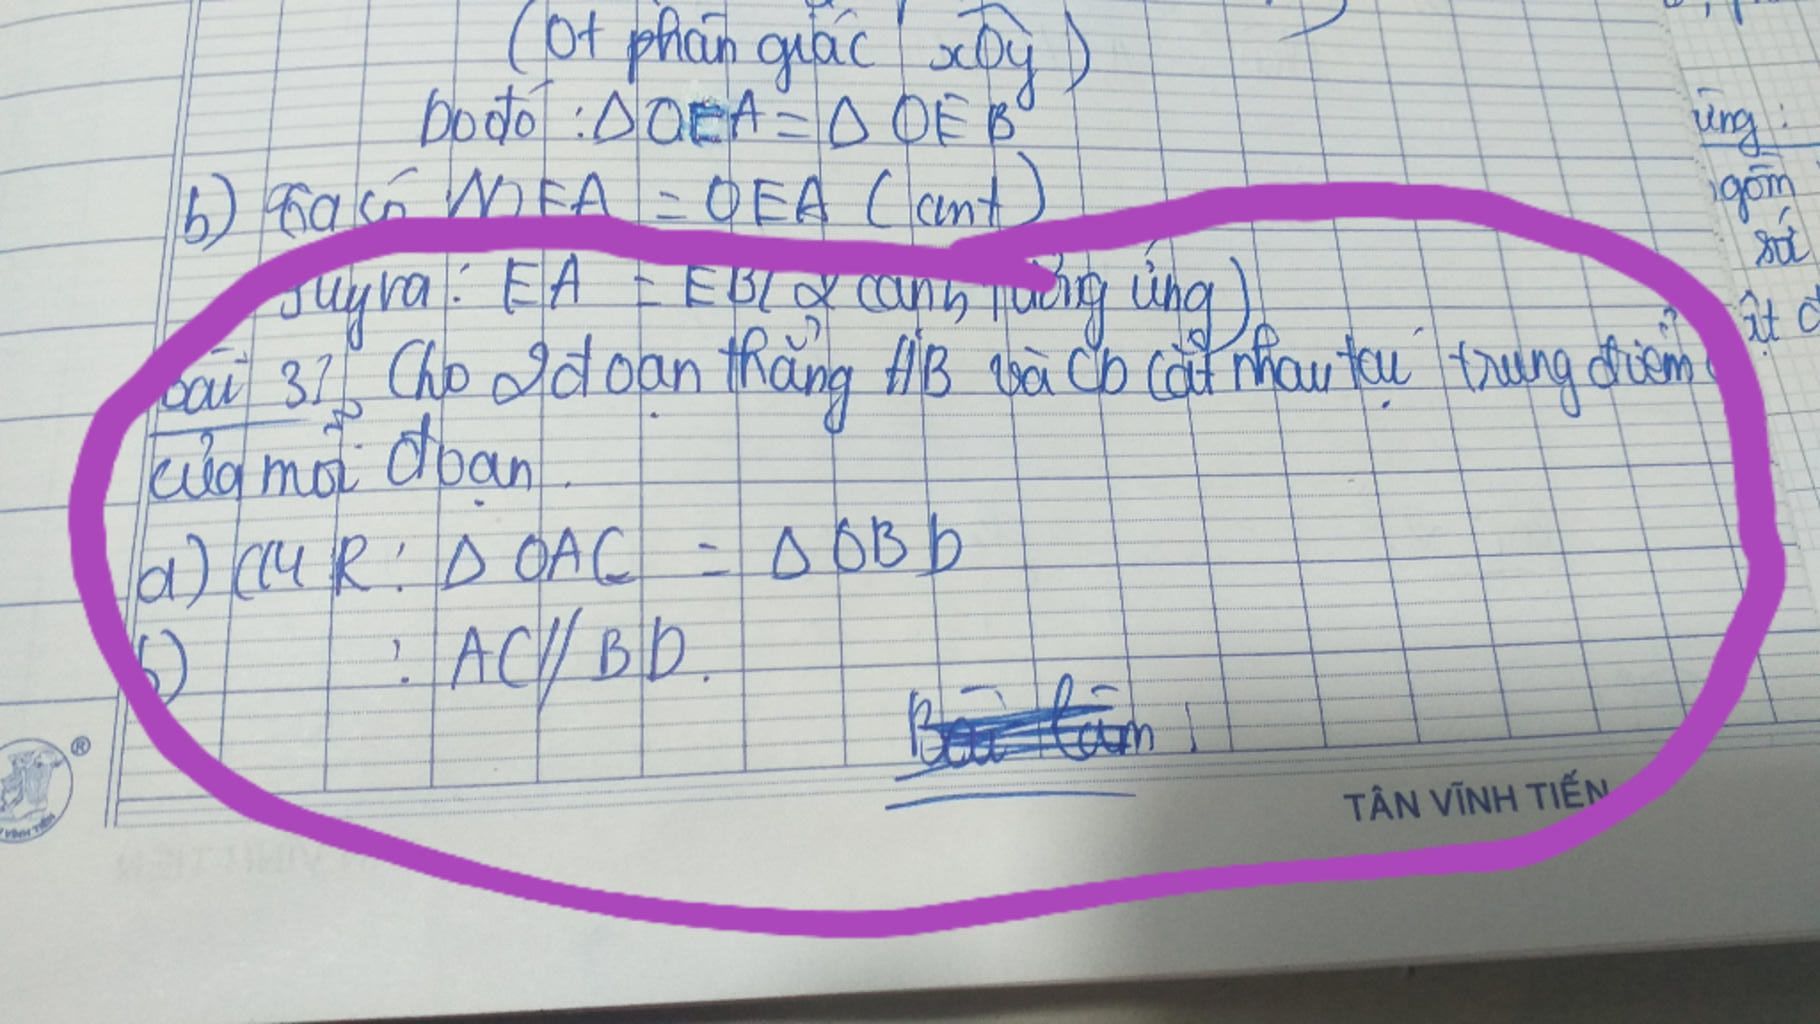 (Ot phân giác xOy)
Do đó : Δ OEA = Δ OEB
b) Ta có ΔOEA = OEA (cmt)
Suy ra : EA = EB (2 cạnh tương ứng)
bài 3: Cho 2 đoạn thẳng AB và CD cắt nhau tại trung điểm
của mỗi đoạn.
a) CMR : Δ OAC = Δ OBD
b) : AC // BD.
Bài làm
TÂN VĨNH TIẾN
®
ứng :
gồm
số